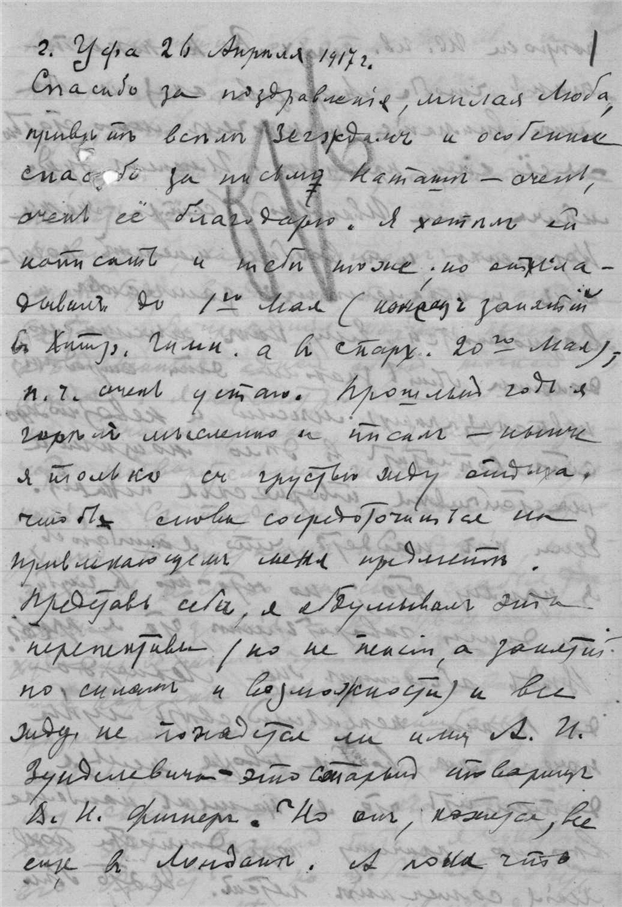 г. Уфа 26 Апреля 1917 г. 1
Спасибо за поздравленія, милая Люба,
привѣтъ всѣмъ и особенное
спасибо за письмо Наташѣ – очень,
очень её благодарю. Я хотѣлъ ей
написать и тебѣ тоже, но откла-
дывалъ до 1го Мая (конецъ занятій
в гимн. а в 20го Мая),
п. ч. очень устаю. Прошлый годъ я
горѣлъ мысленно и писалъ – нынче
я только съ грустью жду отдыха,
чтобы снова сосредоточиться на
привлекающемъ меня предметѣ.
Представь себѣ, я обдумывалъ эти
перспективы (но не пенсіи, а занятій
по силамъ и возможности) и все
жду, не попадется ли имя А. И.
Зунделевича – это старый товарищъ
В. Н. Фигнеръ. Но он, кажется, все
еще в Лондонѣ. А пока что